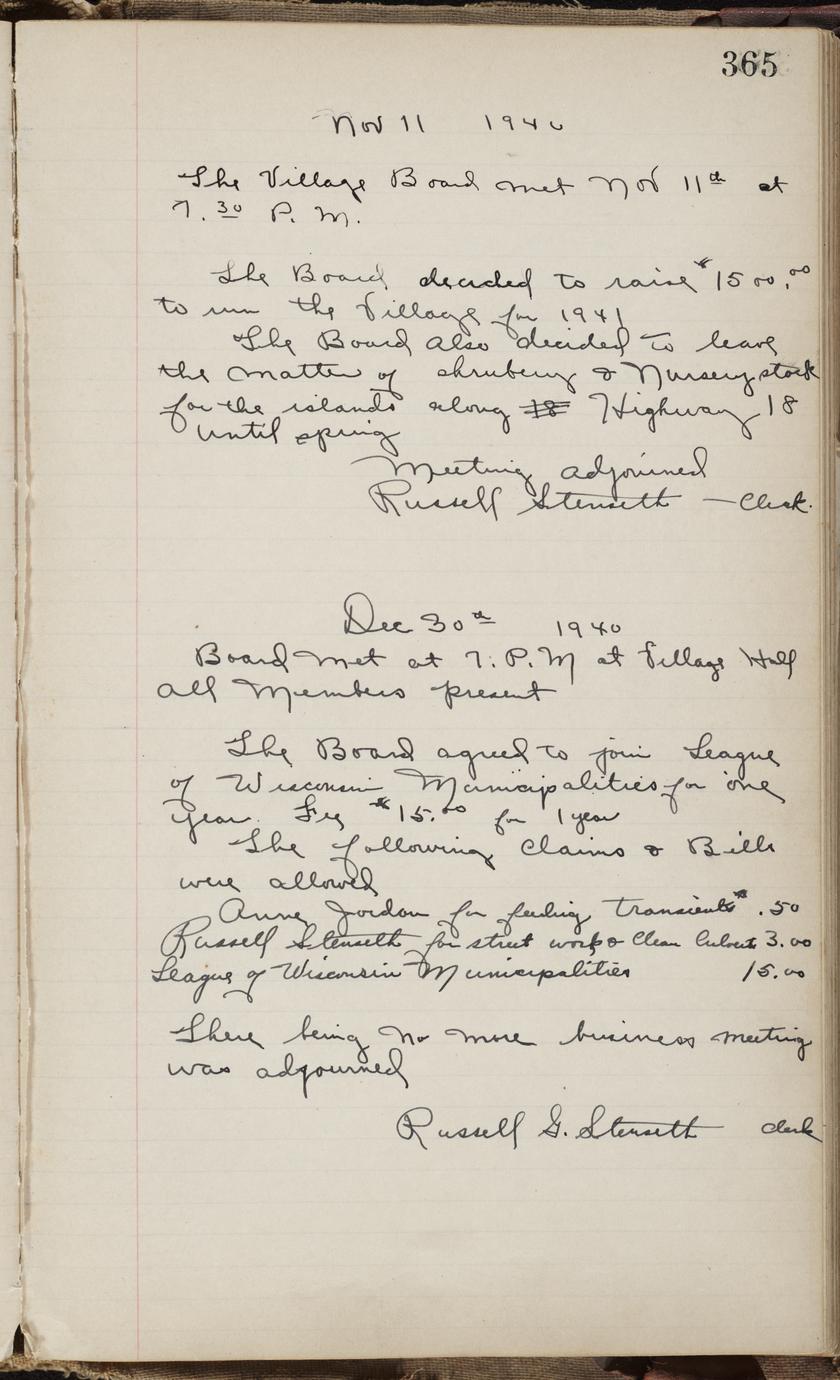 365
Nov 11 1940
The Village Board met Nov 11th at
7.30 P. M.
The Board decided to raise $1500.00
to run the Village for 1941
The Board also decided to leave
the matter of shrubery & Nursery stock
for the islands along 18 Highway 18
until spring
Meeting adjourned
Russell Stenseth — Clerk.
Dec 30th 1940
Board met at 7. P. M at Village Hall
all Members present
The Board agreed to join League
of Wisconsin Municipalities for one
year. Fee $15.00 for 1 year
The following Claims & Bills
were allowed
Anne Jordan for feeding transients $ .50
Russell Stenseth for street work & Clean Culverts 3.00
League of Wisconsin Municipalities 15.00
There being no more business meeting
was adjourned
Russell G. Stenseth clerk